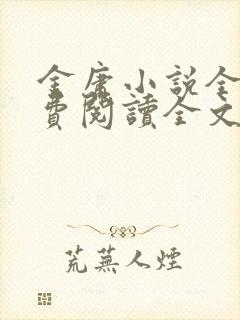 金庸小說全
費閱讀全文
荒蕪人煙